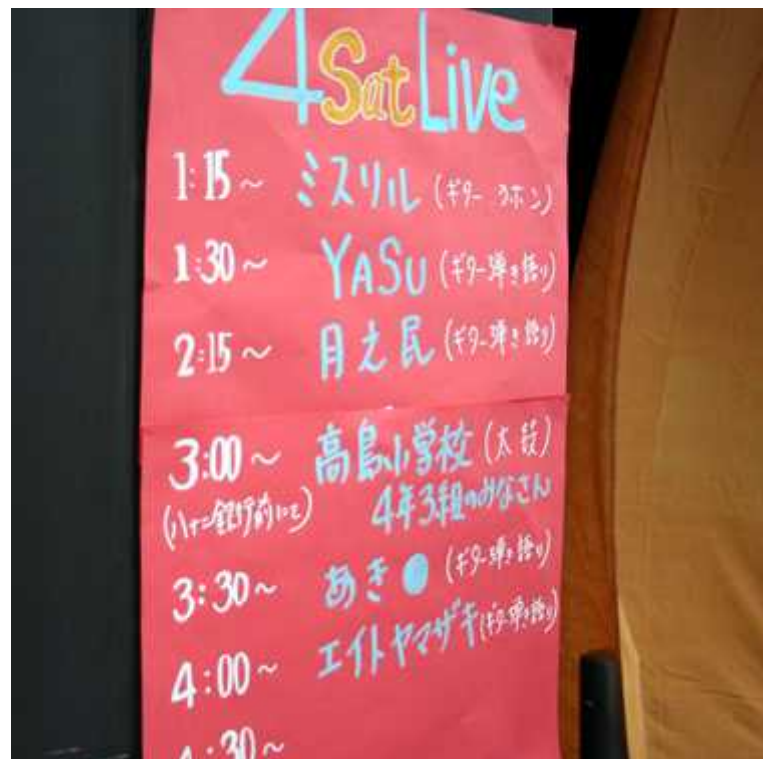 4 Sat Live
1:15～ ミスリル (ギター カホン)
1:30～ YASU (ギター弾き語り)
2:15～ 月之民 (ギター弾き語り)
3:00～ 高島小学校 (太鼓)
(八十二銀行前にて) 4年3組のみなさん
3:30～ あき● (ギター弾き語り)
4:00～ エイトヤマザキ (ギター弾き語り)
4:30～